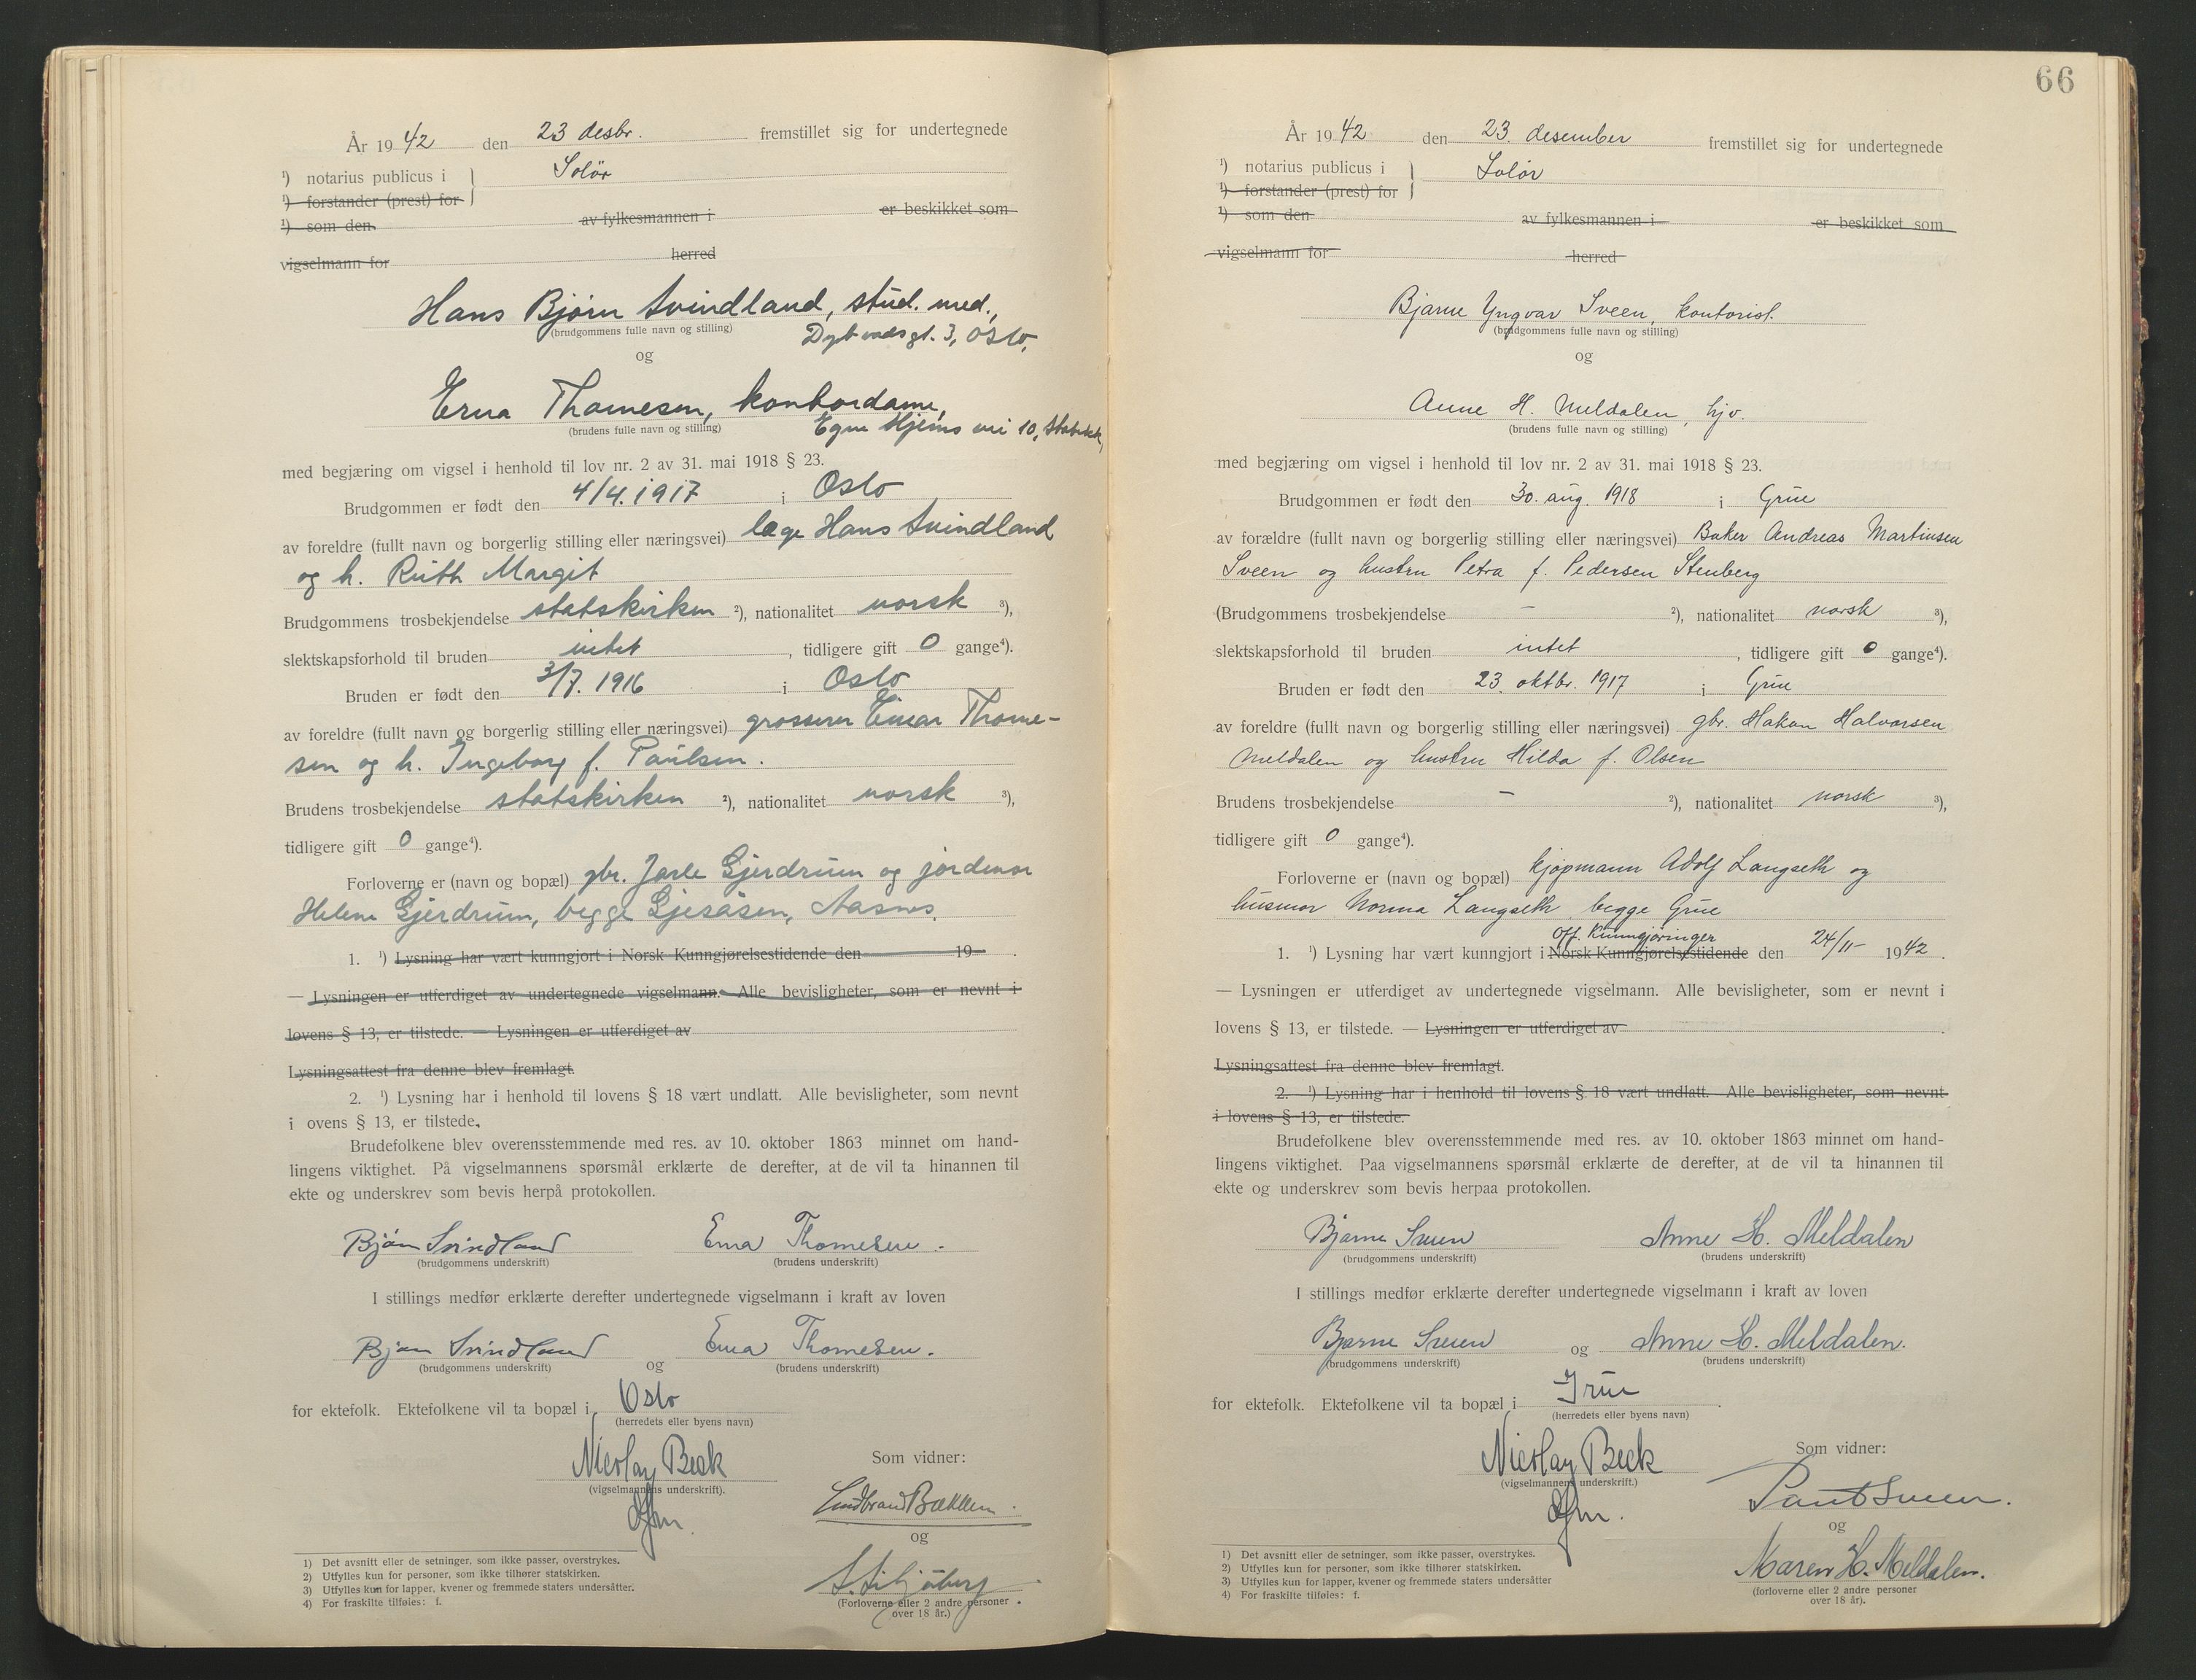 År 19 42 den 23 desbr. fremstillet sig for undertegnede
¹) notarius publicus i Solör
¹) forstander (prest) for
¹) som den av fylkesmannen i er beskikket som
vigselmann for herred
Hans Bjørn Svindland, stud. med.,
(brudgommens fulle navn og stilling) Dybwadsgt. 3, Oslo,
og
Erna Thomesen, kontordame,
(brudens fulle navn og stilling) Egne Hjems vei 10, Stabekk,
med begjæring om vigsel i henhold til lov nr. 2 av 31. mai 1918 § 23.
Brudgommen er født den 4/4.1917 i Oslo
av foreldre (fullt navn og borgerlig stilling eller næringsvei) læge Hans Svindland
og h. Ruth Margit
Brudgommens trosbekjendelse statskirken ²), nationalitet norsk ³),
slektskapsforhold til bruden intet , tidligere gift 0 gange⁴).
Bruden er født den 3/7. 1916 i Oslo
av foreldre (fullt navn og borgerlig stilling eller næringsvei) grosserer Einar Thome-
sen og h. Ingeborg f. Paulsen.
Brudens trosbekjendelse statskirken ²), nationalitet norsk ³),
tidligere gift 0 gange⁴).
Forloverne er (navn og bopæl) gbr. Jarle Gjerdrum og jordmor
Helene Gjerdrum, begge Gjesåsen, Aasnes.
1. ¹) Lysning har vært kunngjort i Norsk Kunngjørelsestidende den 19 .
— Lysningen er utferdiget av undertegnede vigselmann. Alle bevisligheter, som er nevnt i
lovens § 13, er tilstede. — Lysningen er utferdiget av
Lysningsattest fra denne blev fremlagt.
2. ¹) Lysning har i henhold til lovens § 18 vært undlatt. Alle bevisligheter, som nevnt
i ovens § 13, er tilstede.
Brudefolkene blev overensstemmende med res. av 10. oktober 1863 minnet om hand-
lingens viktighet. På vigselmannens spørsmål erklærte de derefter, at de vil ta hinannen til
ekte og underskrev som bevis herpå protokollen.
Bjørn Svindland Erna Thomesen.
(brudgommens underskrift) (brudens underskrift)
I stillings medfør erklærte derefter undertegnede vigselmann i kraft av loven
Bjørn Svindland og Erna Thomesen.
(brudgommens underskrift) (brudens underskrift)
for ektefolk. Ektefolkene vil ta bopæl i Oslo
(herredets eller byens navn)
Nicolay Beck Som vidner:
(vigselmannens underskrift).
og
(Forloverne eller 2 andre personer
over 18 år.)
1) Det avsnitt eller de setninger, som ikke passer, overstrykes.
2) Utfylles kun for personer, som ikke tilhører statskirken.
3) Utfylles kun for lapper, kvener og fremmede staters undersåtter.
4) For fraskilte tilføies: f.
66
År 19 42 den 23. desember fremstillet sig for undertegnede
¹) notarius publicus i Solør
¹) forstander (prest) for
¹) som den av fylkesmannen i er beskikket som
vigselmann for herred
Bjarne Yngvar Sveen, kontorist.
(brudgommens fulle navn og stilling)
og
Anne H. Meldalen, hjv.
(brudens fulle navn og stilling)
med begjæring om vigsel i henhold til lov nr. 2 av 31. mai 1918 § 23.
Brudgommen er født den 30. aug. 1918 i Grue
av forældre (fullt navn og borgerlig stilling eller næringsvei) Baker Andreas Martinsen
Sveen og hustru Petra f. Pedersen Stenberg
(Brudgommens trosbekjendelse – ²), nationalitet norsk ³),
slektskapsforhold til bruden intet , tidligere gift 0 gange⁴).
Bruden er født den 23. oktbr. 1917 i Grue
av foreldre (fullt navn og borgerlig stilling eller næringsvei) gbr. Hakon Halvorsen
Meldalen og hustru Hilda f. Olsen
Brudens trosbekjendelse – ²), nationalitet norsk ³),
tidligere gift 0 gange⁴).
Forloverne er (navn og bopæl) kjøpmann Adolf Langseth og
husmor Norma Langseth begge Grue
Off. Kunngjøringer
1. ¹) Lysning har vært kunngjort i Norsk Kunngjørelsestidende den 24/11- 1942 .
— Lysningen er utferdiget av undertegnede vigselmann. Alle bevisligheter, som er nevnt i
lovens § 13, er tilstede. — Lysningen er utferdiget av .
Lysningsattest fra denne blev fremlagt.
2. ¹) Lysning har i henhold til lovens § 18 vært undlatt. Alle bevisligheter, som nevnt
i lovens § 13, er tilstede.
Brudefolkene blev overensstemmende med res. av 10. oktober 1863 minnet om hand-
lingens viktighet. Paa vigselmannens spørsmål erklærte de derefter, at de vil ta hinannen til
ekte og underskrev som bevis herpaa protokollen.
Bjarne Sveen Anne H. Meldalen
(brudgommens underskrift) (brudens underskrift)
I stillings medfør erklærte derefter undertegnede vigselmann i kraft av loven
Bjarne Sveen og Anne H. Meldalen.
(brudgommens underskrift) (brudens underskrift)
for ektefolk. Ektefolkene vil ta bopæl i Grue .
(herredets eller byens navn)
Nicolay Beck Som vidner:
(vigselmannens underskrift.)
Sveen.
og
Maren H. Meldalen.
(forloverne eller 2 andre personer
over 18 år).
1) Det avsnitt eller de setninger, som ikke passer, overstrykes.
2) Utfylles kun for personer, som ikke tilhører statskirken.
3) Utfylles kun for lapper, kvener og fremmede staters undersåtter
4) For fraskilte tilføies: f.